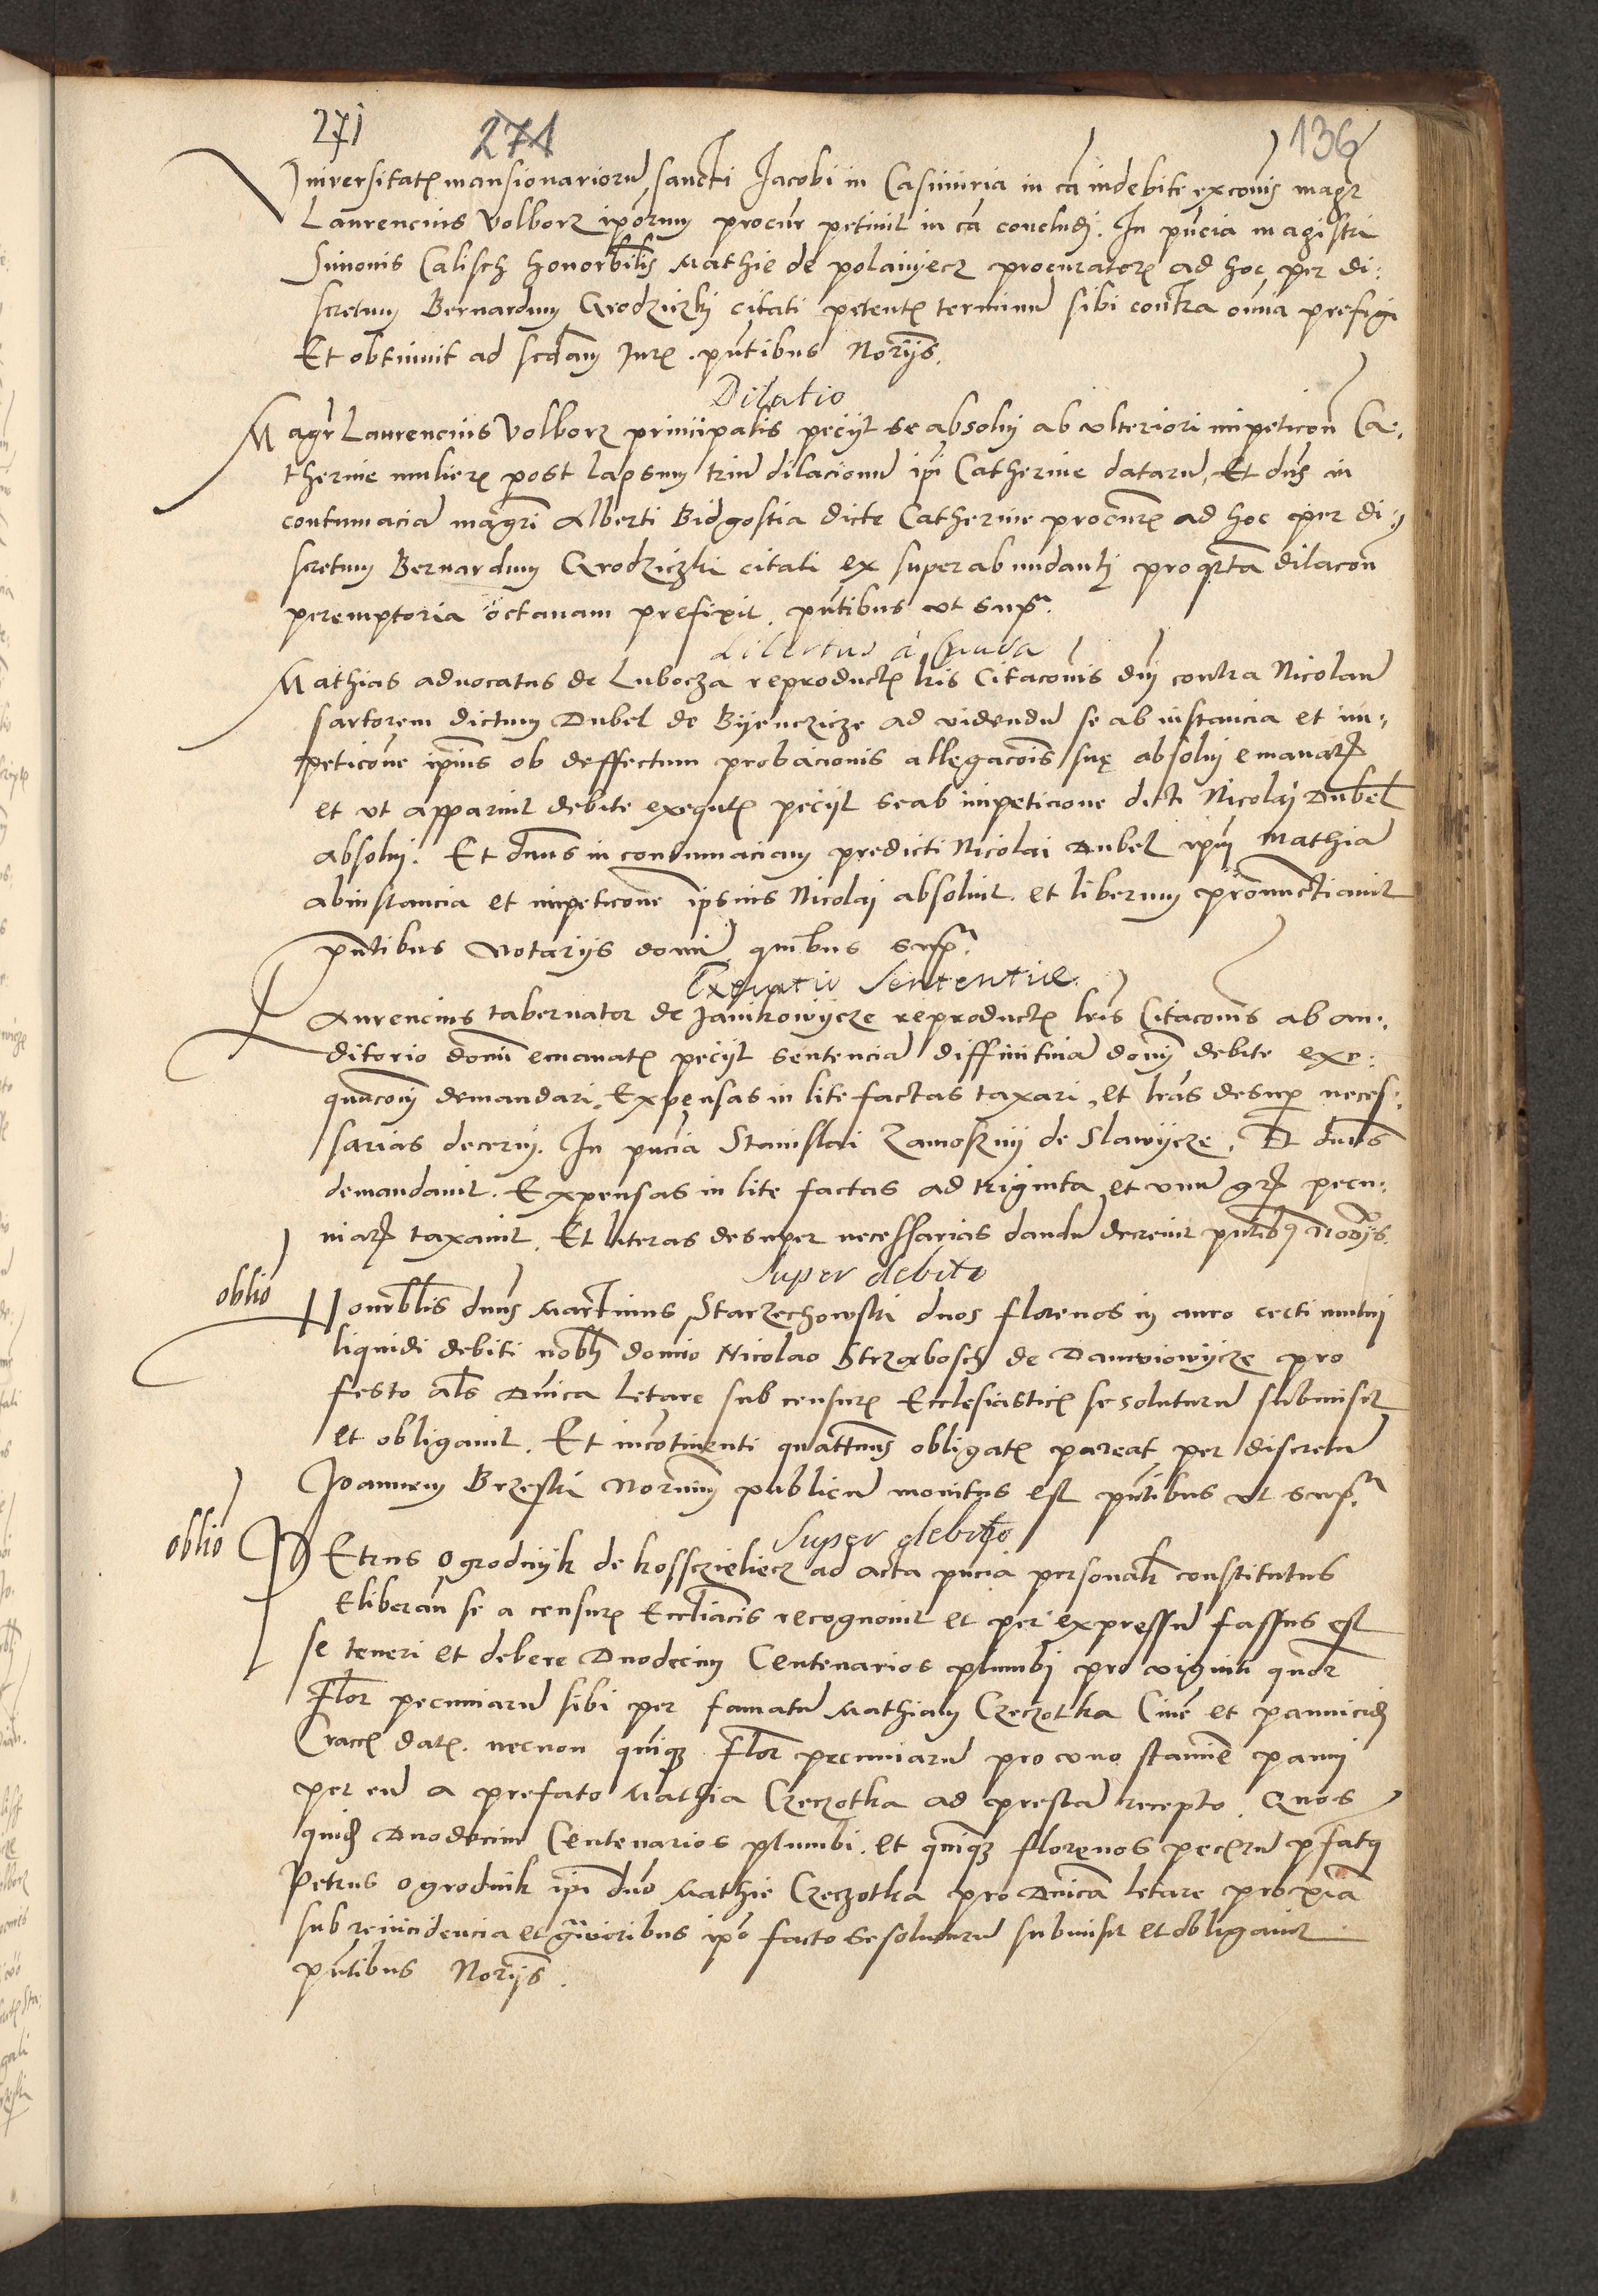 271 271 136
Universitatem mansionariorũ sancti Jacobi in Casimiria in cã indebite exco͠nis magr̃
Laurencius Volborz ip̃orum procur̃ petiuit in cã concludj. In p̃ncia magistri
Simonis Calisch honorbilis Mathie de polanyecz procuratoris ad hoc per di:
scretum Bernardum Grodziczkj citati petentis terminũ sibi contra om̃ia prefigi
Et obtinuit ad sc̃dam Juris. pñtibus Norijs.
Dilatio
Magr̃ Laurencius Volborz principalis pecijt se absoluj ab vlteriori impeticoñ Ca:
therine mulieris post lapsum triũ dilacionũ ip̃i Catherine datarũ, Et dñs in
contumaciã mãgri Alberti Bidgostia dicte Catherine procuris ad hoc per di:
scretum Bernardum Grodziczki citati ex superabundantj pro qrta dilacoñ
peremptoria octauam prefixit. pñtibus vt supª.
Libertus a
Mathias aduocatus de Lubocza reproductis lris Citacoñis dñj contra Nicolaũ
sartorem dictum Dubel de Byenczicze ad videndũ se ab instancia et im:
peticoñe ip̃ius ob deffectum probacionis allegacoñis suę absoluj emanatis
et vt apparuit debite exequtis pecijt se ab impeticione dicti Nicolaj Dubel
absoluj. Et dñus in contumaciam predicti Nicolai Dubel ip̃m Mathiã
ab instancia et impeticoñe ipsius Nicolaj absoluit. et liberum pronunctiauit
pñtibus Notarijs domi quibus supª.
Exequutio sententiae.
Laurencius tabernator de Janikowycze reproductis lris Citacoñis ab au:
ditorio domi emanatis pecijt sentenciã diffinitiuã domj debite exe:
quucoñj demandari, Expensas in lite factas taxari, et lr̃as desup neces:
sarias decernj. In p̃ncia Stanislai Zamoskny de Slawycze. Et dñus
demandauit. Expensas in lite factas ad triginta et vnũ gr pecu:
niar taxauit. Et literas desuper necessarias dandũ decreuit pñtib9 Norijs.
Super debito
oblio Honorblis dñus Martinus Starzechowski duos florenos in auro certi mutui
liquidi debiti nobli domio Nicolao Strzezbosch de Damyowycze pro
festo als Dñica letare sub censuris Ecclesiasticis se soluturũ submisit
et obligauit. Et incontinenti quattenus obligatis pareat per discretũ
Joannem Brzeski Norium publicũ monitus est pñtibus vt supª.
Super debito
oblio PEtrus Ogrodnyk de kossczieliecz ad acta p̃ncia personalr constitutus
Eliberan̄ se a censuris Ecclĩacis recognouit et per expressũ fassus est
se teneri et debere Duodecim Centenarios plumbj pro viginti qũor
Flor pecuniarũ sibi per famatũ Mathiam Czeczotka Ciuẽ et pannicidã
Cracẽ datis. necnon quinqꝫ Flor pecuniarũ pro vno stamiẽ panni
per eũ a prefato Mathia Czeczotka ad prestã recepto. Quos
quidẽ Duodecim Centenarios plumbi. et quinqꝫ florenos peccniarũ p̃fatq
Petrus ogrodnik ip̃i dño Mathie Czeczotka pro Dñica letare proxiã
sub reincidencia et gr̃auioribus ip̃o facto se soluturũ submisit et obligauit
pñtibus Norijs.